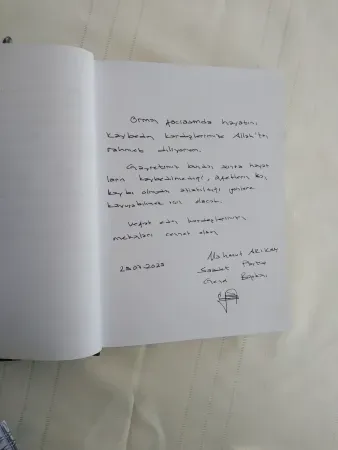 Orman faciasında hayatını
kaybeden kardeşlerimize Allah'tan
rahmet diliyorum.
Gayretimiz bundan sonra hayat
ların kaybedilmediği, afetlerin
kaybı olmadan atlatıldığı günlere
kavuşabilmek için olacak.
Vefat eden kardeşlerimizin
mekanları cennet olsun
Mahmut Arıkan
Saadet Partisi
Genel Başkanı